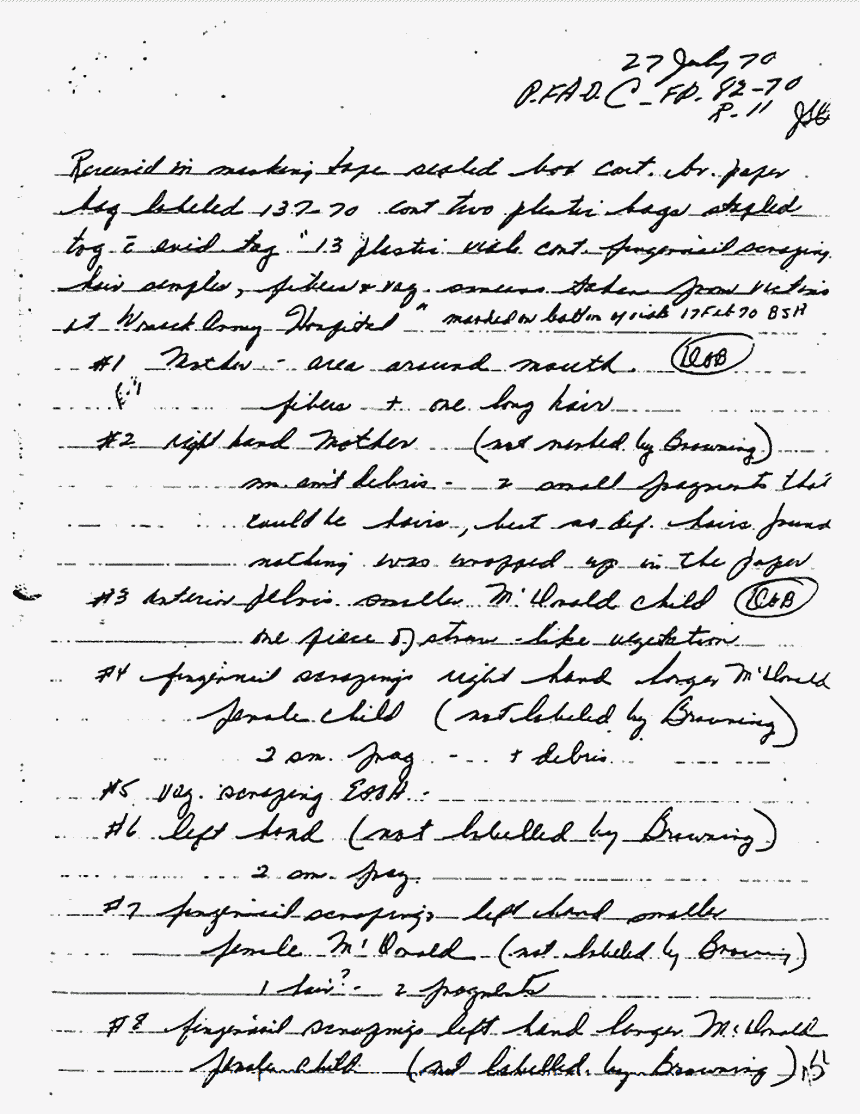 27 July 70
P-FA-D-C-FP-82-70
R-11
Received in masking tape sealed box cont. br. paper
bag labeled 137-70 cont two plastic bags stapled
tog c̄ evid tag "13 plastic vials cont. fingernail scraping
hair samples, fibers & vag. smears taken from victims
at Womack Army Hospital" marked on bottom of vials 17 Feb 70 BSH
#1 Mother - area around mouth. DOB
fibers + one long hair
#2 right hand Mother (not marked by Browning)
debris - 2 small fragments that
could be hairs, but no def. hairs found
nothing was wrapped up in the paper
#3 anterior pelvis smaller McDonald child DOB
one piece of straw-like vegetation
#4 fingernail scrapings right hand larger McDonald
female child (not labeled by Browning)
2 sm. frag - + debris
#5 vag. scraping -
#6 left hand (not labelled by Browning)
2 sm. frag.
#7 fingernail scrapings left hand smaller
female McDonald (not labeled by Browning)
1 hair? - 2 fragments
#8 fingernail scrapings left hand larger McDonald
female child (not labelled by Browning)